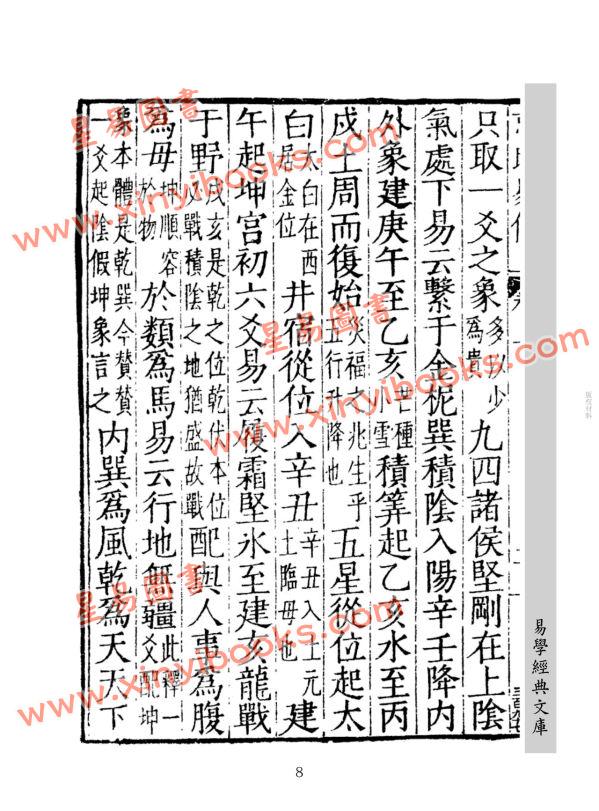 只取一爻之象多以少為貴九四諸侯堅剛在上陰
氣處下易云繫于金柅巽積陰入陽辛壬降內
外象建庚午至乙亥芒種小雪積筭起乙亥水至丙
戌土周而復始災福之兆生乎五行升降也五星從位起太
白太白在西居金位井宿從位入辛丑辛丑入土元土臨母也建
午起坤宮初六爻易云履霜堅氷至建亥龍戰
于野戌亥是乾之位乾伏本位必戰積陰之地猶盛故戰配與人事為腹
為母坤順容於物於類為馬易云行地無疆此釋一爻配坤
象本體是乾巽今賛賛一爻起陰假坤象言之內巽為風乾為天天下
易學經典文庫
版权材料
星易圖書
www.xinyibooks.com
星易圖書
www.xinyibooks.com
星易圖書
www.xinyibooks.com
8